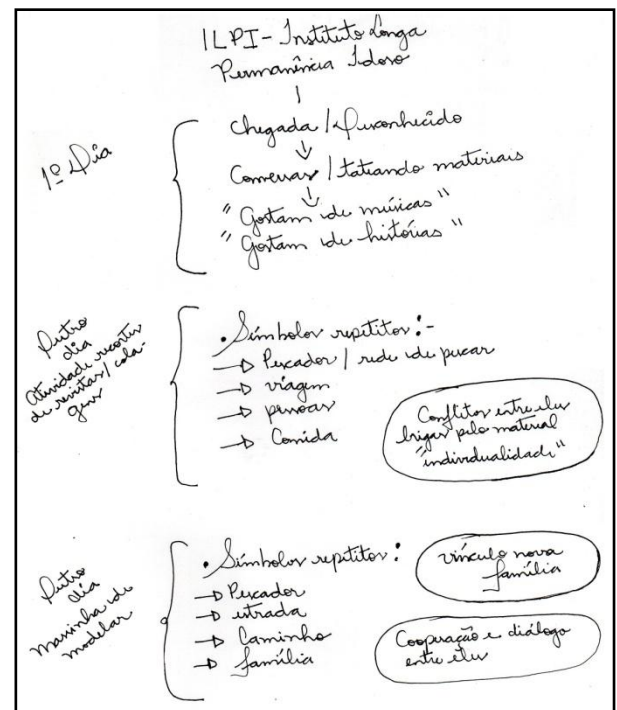 ILPI - Instituto Longa
Permanência Idoso
1º Dia
Chegada / Desconhecido
Conversas / tateando materiais
"Gostam de músicas"
"Gostam de histórias"
Outro
dia
Atividade recortes
de revistas / cola-
gens
• Símbolos repetitos :-
→ Pescador / rede de pescar
→ viagem
→ pessoas
→ Comida
Conflitos entre eles
brigas pelo material
"individualidade"
Outro
dia
Massinha de
modelar
• Símbolos repetitos :
→ Pescador
→ estrada
→ Caminho
→ família
vínculo nova
família
Cooperação e diálogo
entre eles